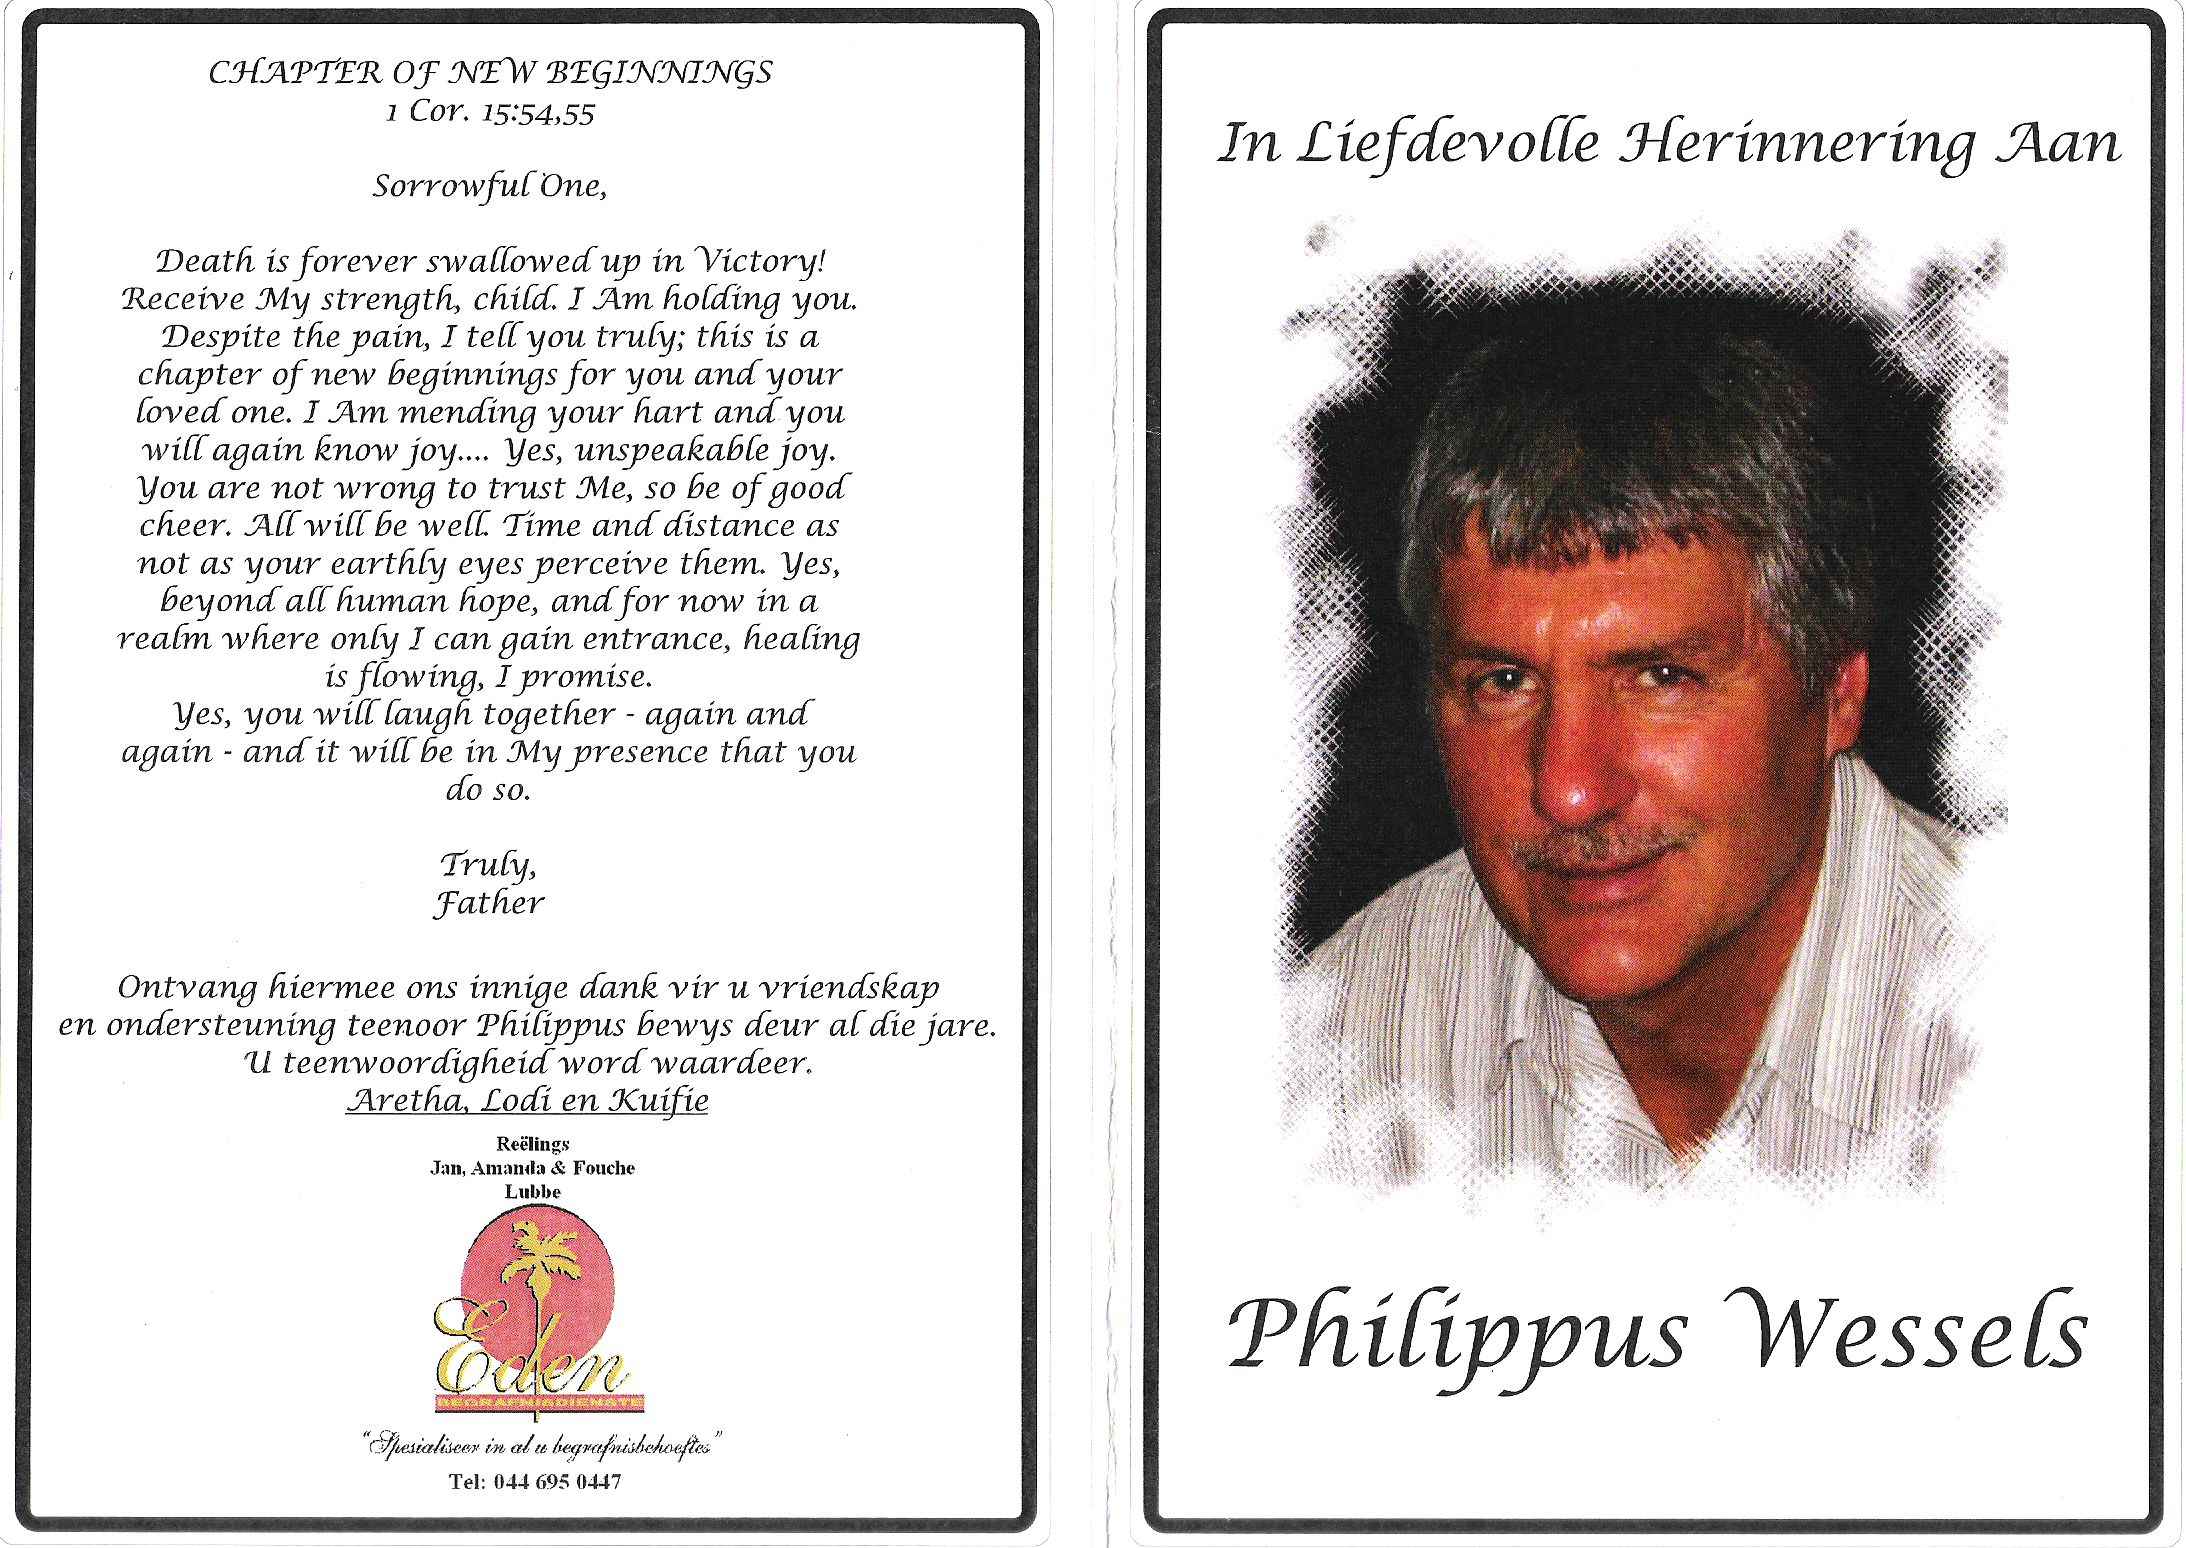 CHAPTER OF NEW BEGINNINGS
1 Cor. 15:54,55
Sorrowful One,
Death is forever swallowed up in Victory!
Receive My strength, child. I Am holding you.
Despite the pain, I tell you truly; this is a
chapter of new beginnings for you and your
loved one. I Am mending your hart and you
will again know joy.... Yes, unspeakable joy.
You are not wrong to trust Me, so be of good
cheer. All will be well. Time and distance as
not as your earthly eyes perceive them. Yes,
beyond all human hope, and for now in a
realm where only I can gain entrance, healing
is flowing, I promise.
Yes, you will laugh together - again and
again - and it will be in My presence that you
do so.
Truly,
Father
Ontvang hiermee ons innige dank vir u vriendskap
en ondersteuning teenoor Philippus bewys deur al die jare.
U teenwoordigheid word waardeer.
Aretha, Lodi en Kuifie
Reëlings
Jan, Amanda & Fouche
Lubbe
Eden
BEGRAFNISDIENSTE
“Spesialiseer in al u begrafnisbehoeftes”
Tel: 044 695 0447
In Liefdevolle Herinnering Aan
Philippus Wessels